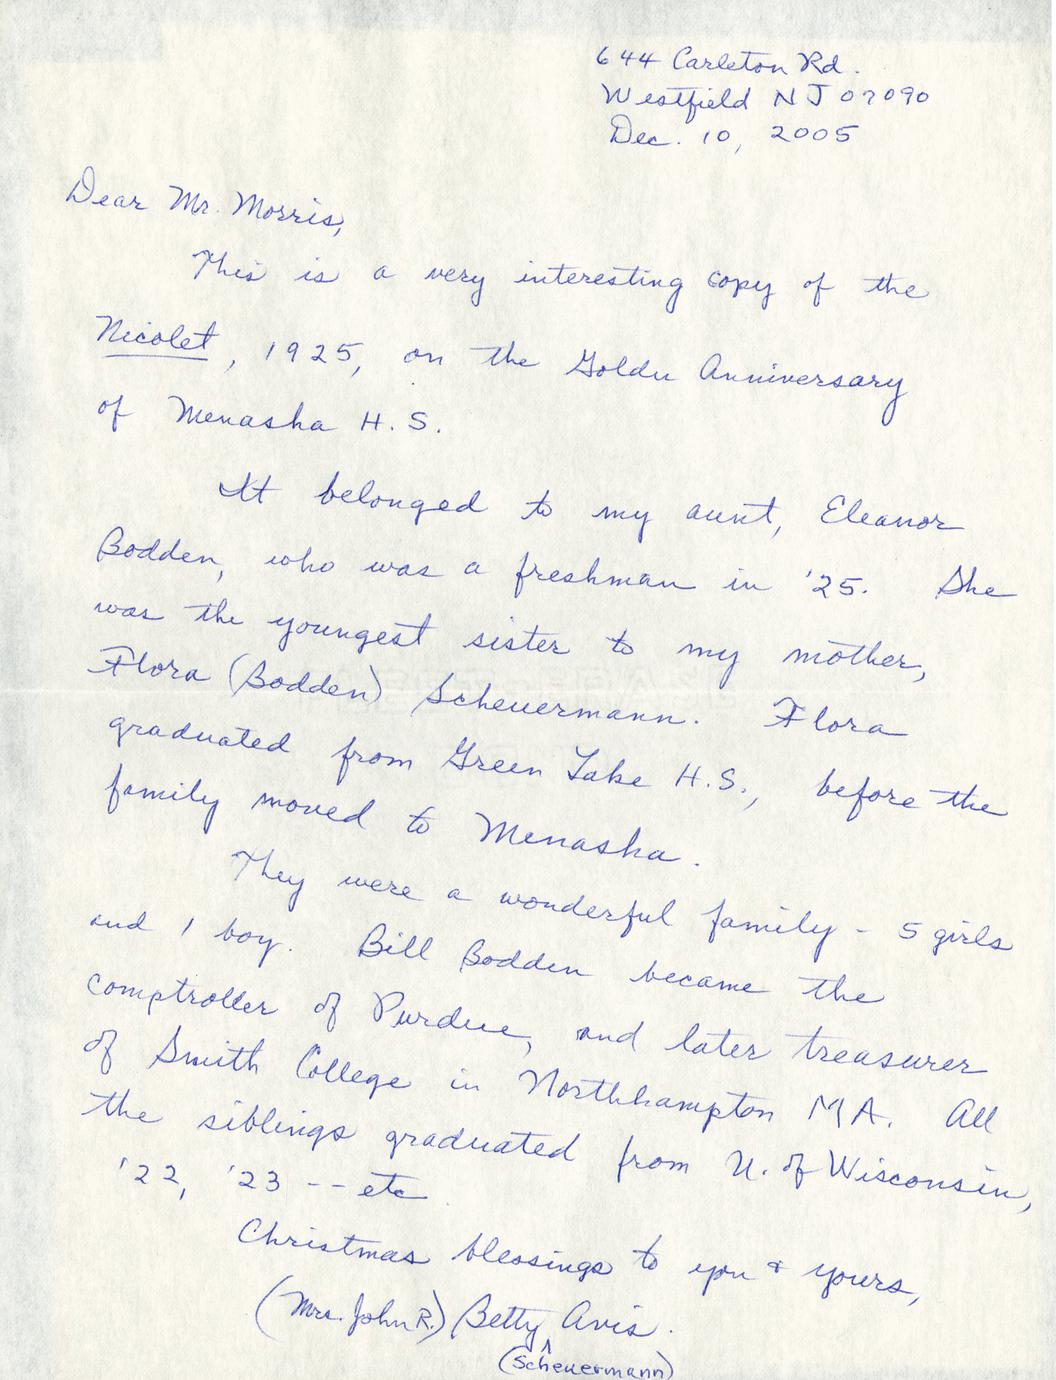 644 Carleton Rd.
Westfield NJ 07090
Dec. 10, 2005
Dear Mr. Morris,
This is a very interesting copy of the
Nicolet, 1925, on the Golden Anniversary
of Menasha H. S.
It belonged to my aunt, Eleanor
Bodden, who was a freshman in '25. She
was the youngest sister to my mother,
Flora (Bodden) Scheuermann. Flora
graduated from Green Lake H.S., before the
family moved to Menasha.
They were a wonderful family - 5 girls
and 1 boy. Bill Bodden became the
comptroller of Purdue, and later treasurer
of Smith College in Northhampton MA. All
the siblings graduated from U. of Wisconsin,
'22, '23 -- etc.
Christmas blessings to you & yours,
(Mrs. John R.) Betty Avis.
^
(Scheuermann)